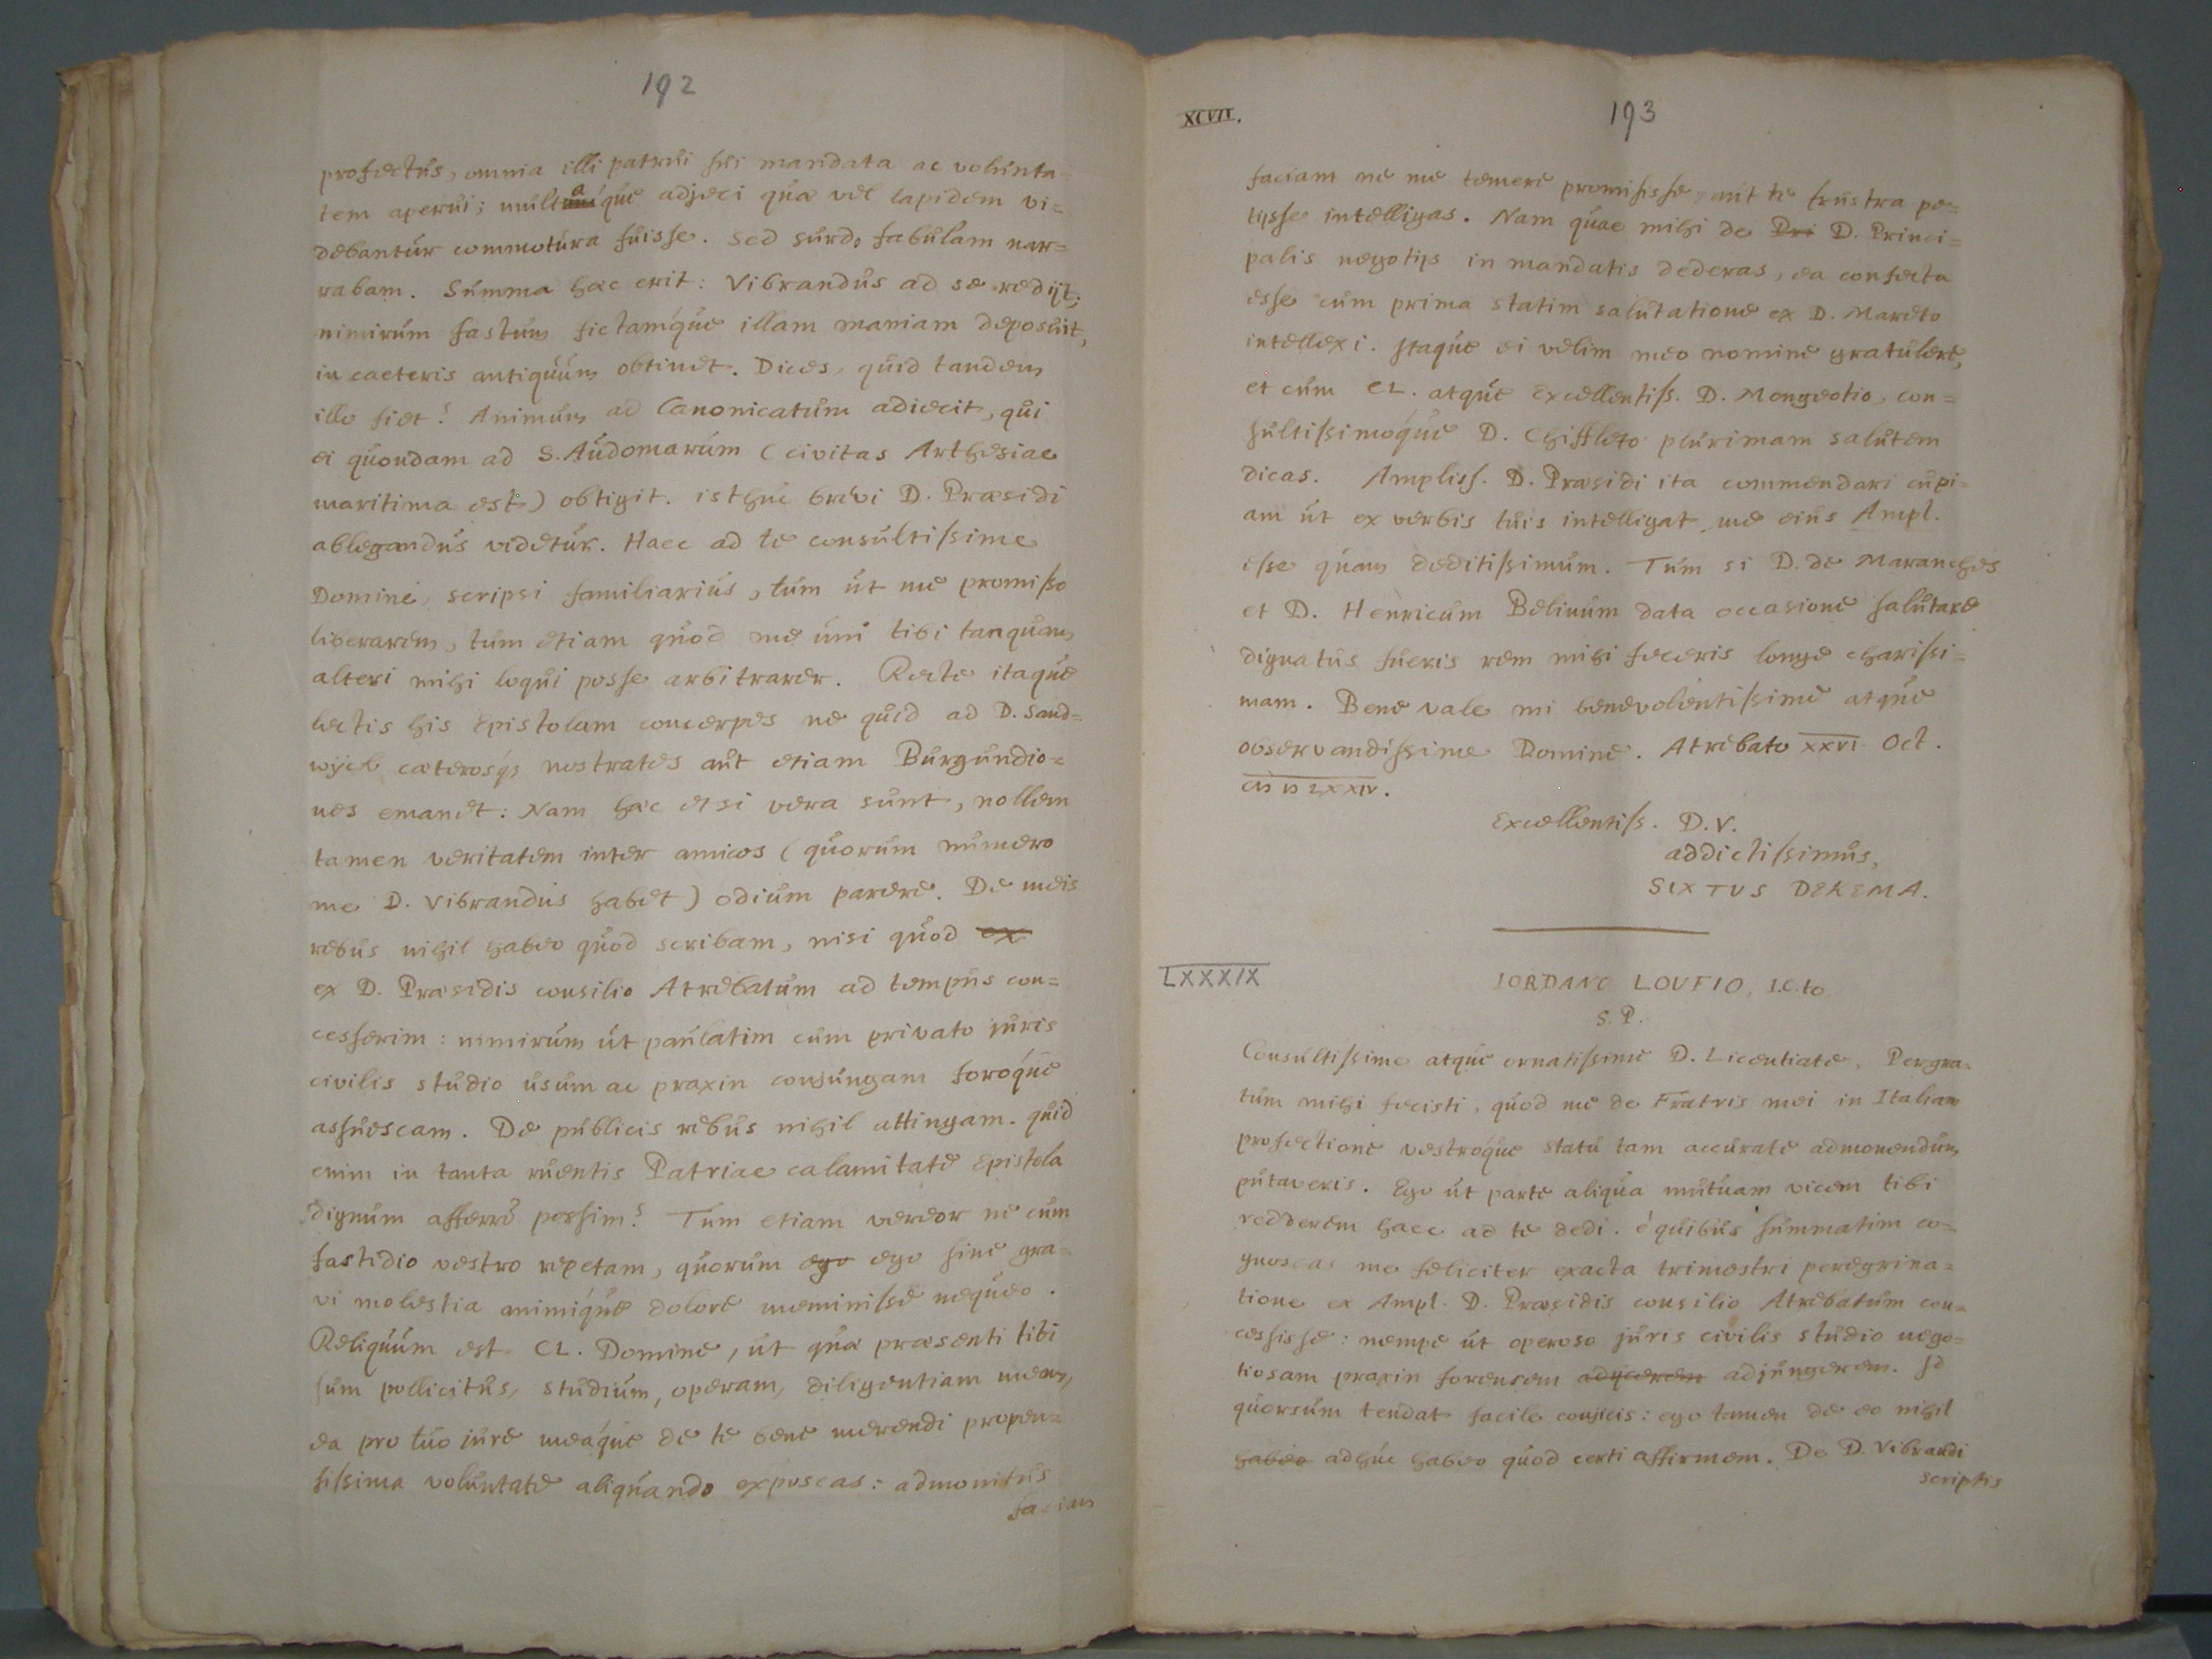 192
profectus, omnia illi patrui sui mandata ac volunta-
tem aperui; multaque adjeci quae vel lapidem vi-
debantur commotura fuisse. Sed surdo fabulam nar-
rabam. Summa haec erit: Vibrandus ad se redijt;
nimirum fastum fictamque illam maniam deposuit,
in caeteris antiquum obtinet. Dices, quid tandem
illo fiet? Animum ad Canonicatum adiecit, qui
ei quondam ad S. Audomarum (civitas Arthesiae
maritima est) obtigit. isthuc brevi D. Praesidi
ablegandus videtur. Haec ad te consultissime
Domine, scripsi familiarius, tum ut me promisso
liberarem, tum etiam quod me uni tibi tanquam
alteri mihi loqui posse arbitrarer. Recte itaque
lectis his Epistolam concerpes ne quid ad D. Sand-
wijck caeterosq; nostrates aut etiam Burgundio-
nes emanet: Nam haec etsi vera sunt, nollem
tamen veritatem inter amicos (quorum numero
me D. Vibrandus habet) odium parere. De meis
rebus nihil habeo quod scribam, nisi quod ex
ex D. Praesidis consilio Atrebatum ad tempus con-
cesserim: nimirum ut paulatim cum privato juris
civilis studio usum ac praxin conjungam foroque
assuescam. De publicis rebus nihil attingam. quid
enim in tanta ruentis Patriae calamitate Epistola
dignum afferre possim? Tum etiam vereor ne cum
fastidio vestro repetam, quorum ego ego sine gra-
vi molestia animique dolore meminisse nequeo.
Reliquum est CL. Domine, ut quae praesenti tibi
sum pollicitus, studium, operam, diligentiam meam,
ea pro tuo jure meaque de te bene merendi propen-
sissima voluntate aliquando exposcas: admonitus
faciam
XCVII.
193
faciam ne me temere promisisse, aut te frustra pe-
tijsse intelligas. Nam quae mihi de Pri D. Princi-
palis negotijs in mandatis dederas, ea confecta
esse cum prima statim salutatione ex D. Mareto
intellexi. Itaque ei velim meo nomine gratulere,
et cum CL. atque Excellentiss. D. Mongeotio, con-
sultissimoque D. Chiffleto plurimam salutem
dicas. Ampliss. D. Praesidi ita commendari cupi-
am ut ex verbis tuis intelligat me eius Ampl.
esse quam deditissimum. Tum si D. de Maranches
et D. Henricum Belinum data occasione salutare
dignatus fueris rem mihi feceris longe charissi-
mam. Bene vale mi benevolentissime atque
observandissime Domine. Atrebato XXVI. Oct.
CIƆ IƆ LXXIV.
Excellentiss. D.V.
addictissimus,
SIXTUS DEKEMA.
LXXXIX
IORDANO LOUFIO, I.C.to
S.P.
Consultissime atque ornatissime D. Licentiate, Pergra-
tum mihi fecisti, quod me de Fratris mei in Italiam
profectione vestroque statu tam accurate admonendum
putaveris. Ego ut parte aliqua mutuam vicem tibi
redderem haec ad te dedi. é quibus summatim co-
gnoscas me feliciter exacta trimestri peregrina-
tione ex Ampl. D. Praesidis consilio Atrebatum con-
cessisse: nempe ut operoso juris civilis studio nego-
tiosam praxin forensem adijcerem adjungerem. Id
quorsum tendat facile conjicis: ego tamen de eo nihil
habeo adhuc habeo quod certi affirmem. De D. Vibrandi
scriptis